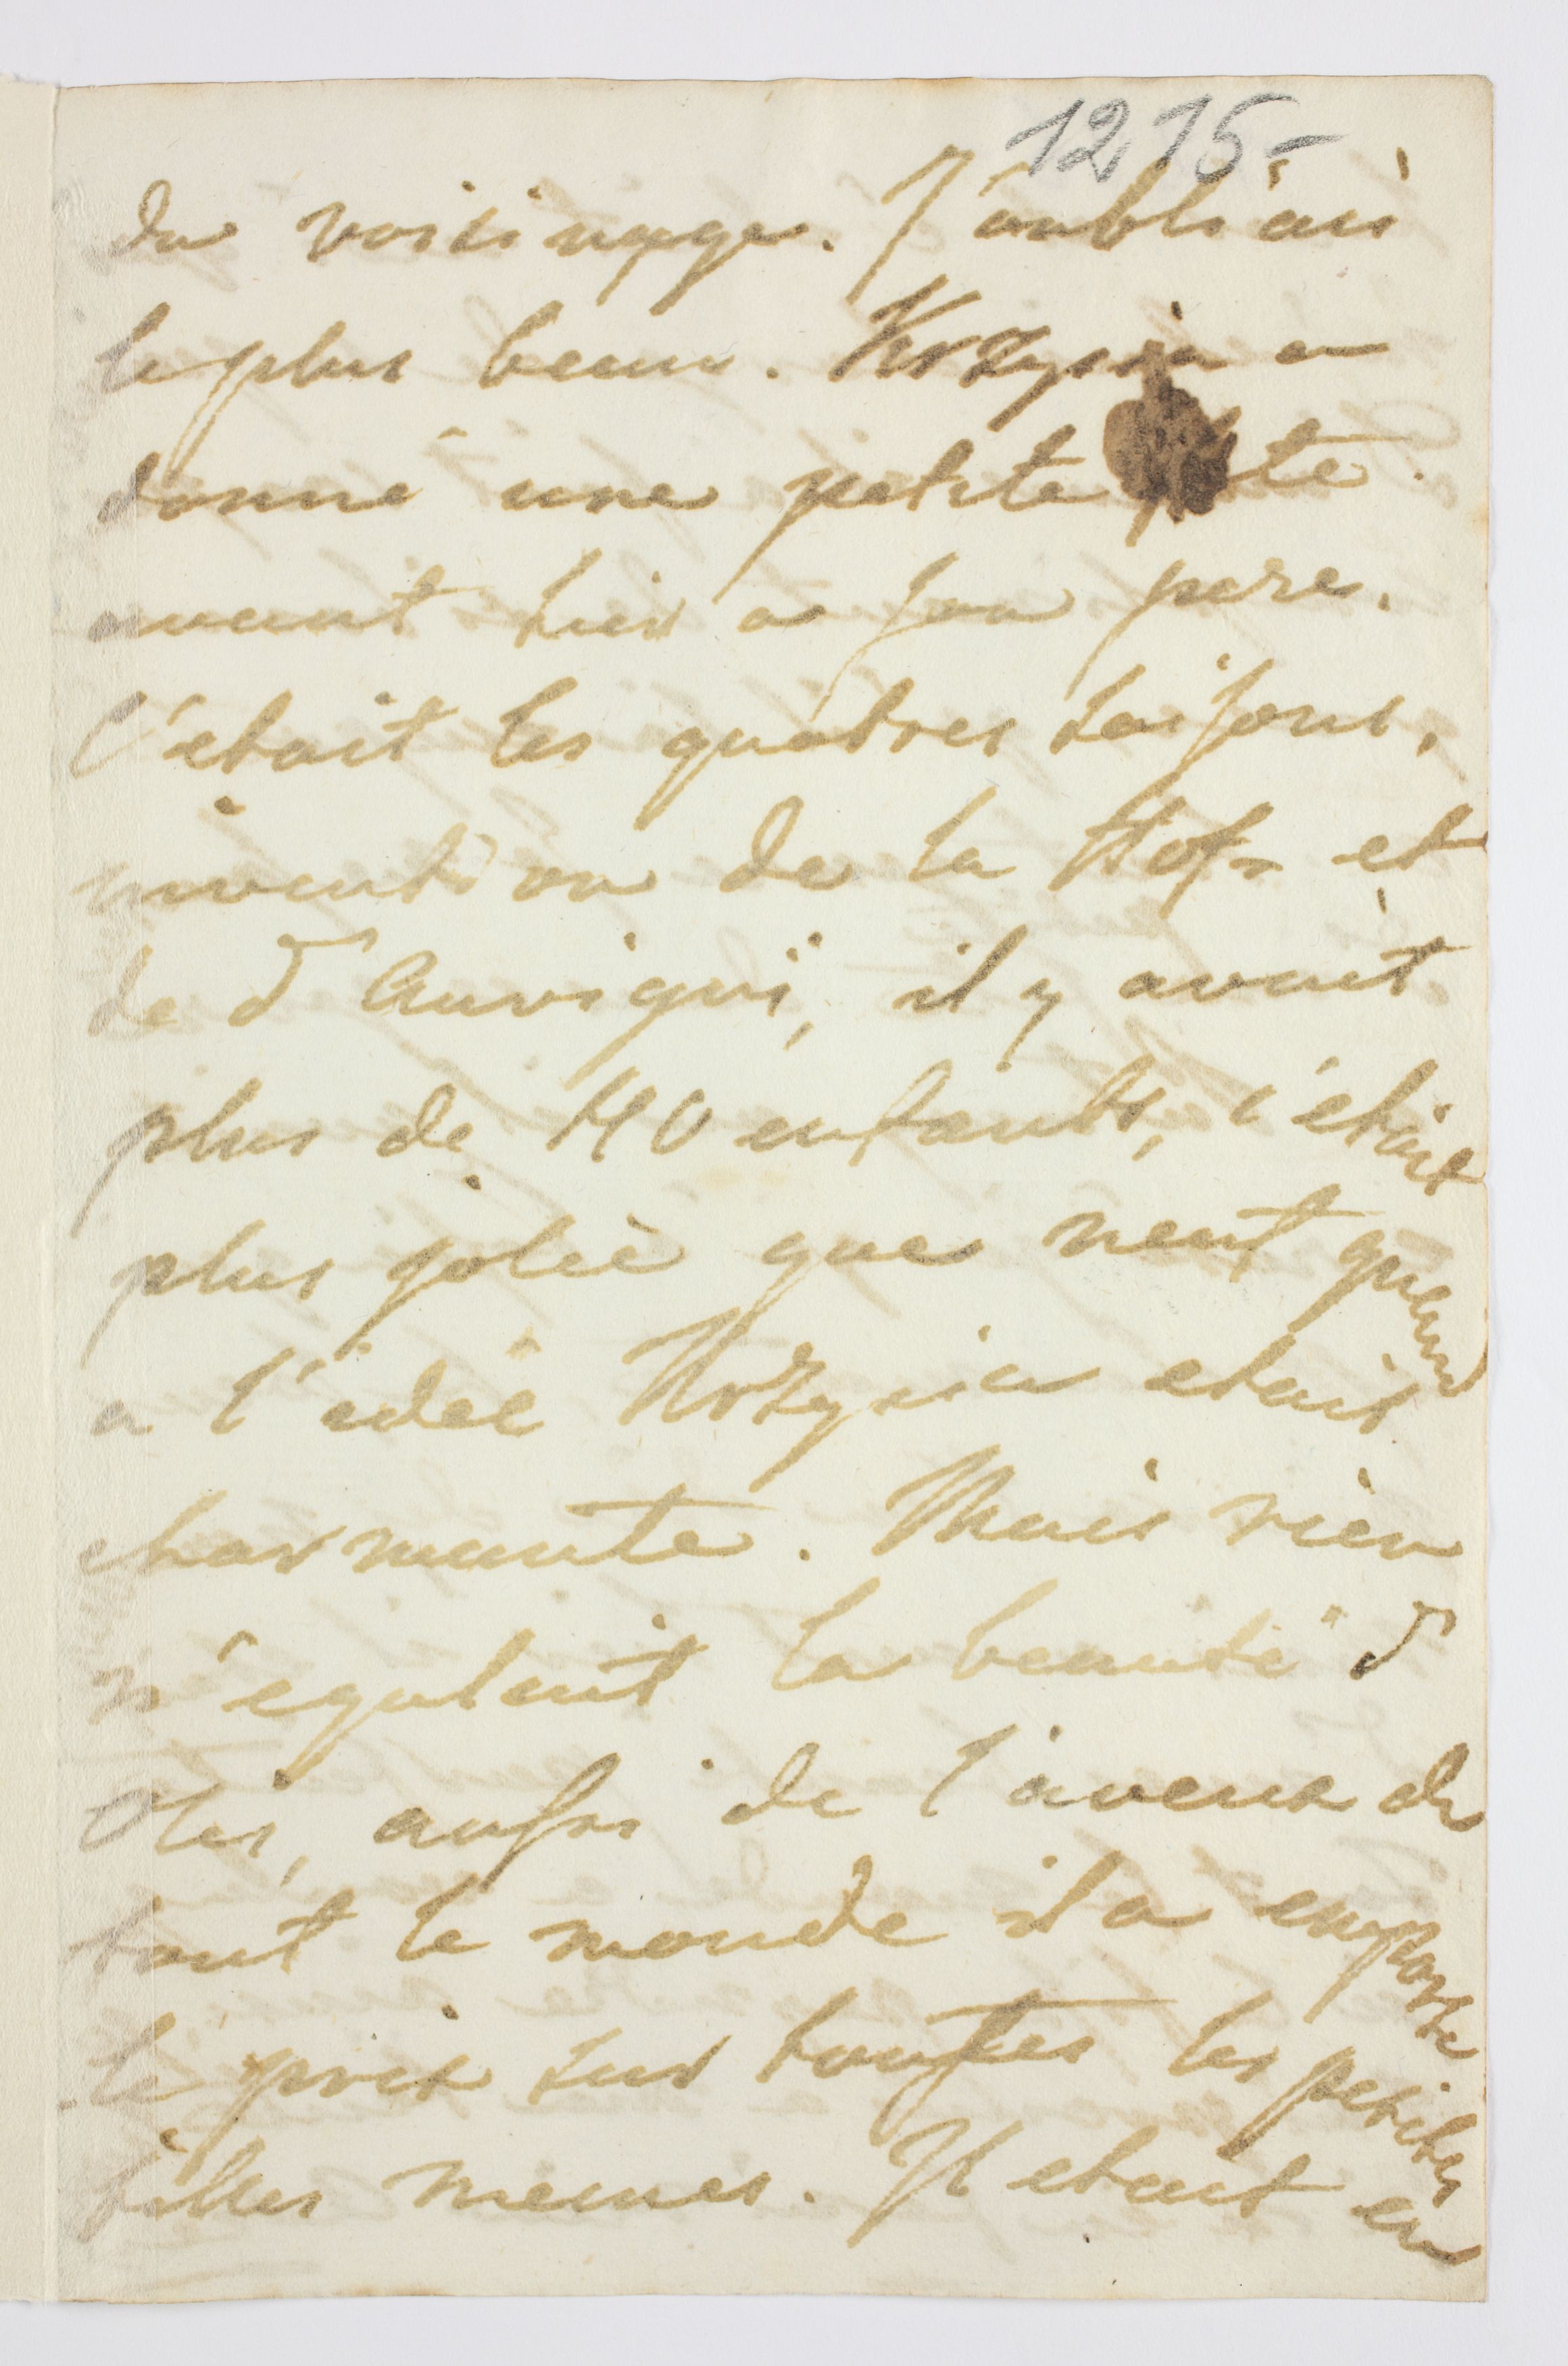 1215-
du voisinage. J'oubliais
le plus beau. Krzysia a
donné une petite fête
avant hier a son pere.
C'etoit les quatres saisons,
invention de la Hof- et
de d'Auvigni, il y avait
plus de 40 enfants, c'était
plus joliè que neuf quand
a l'idée Krzysia etait
charmante. Mais rien
n'egalait la beauté d'
Otei, aussi de l'aveux de
tout le monde il a emporte
le prix sur toutes les petites
filles memes. Il etait en